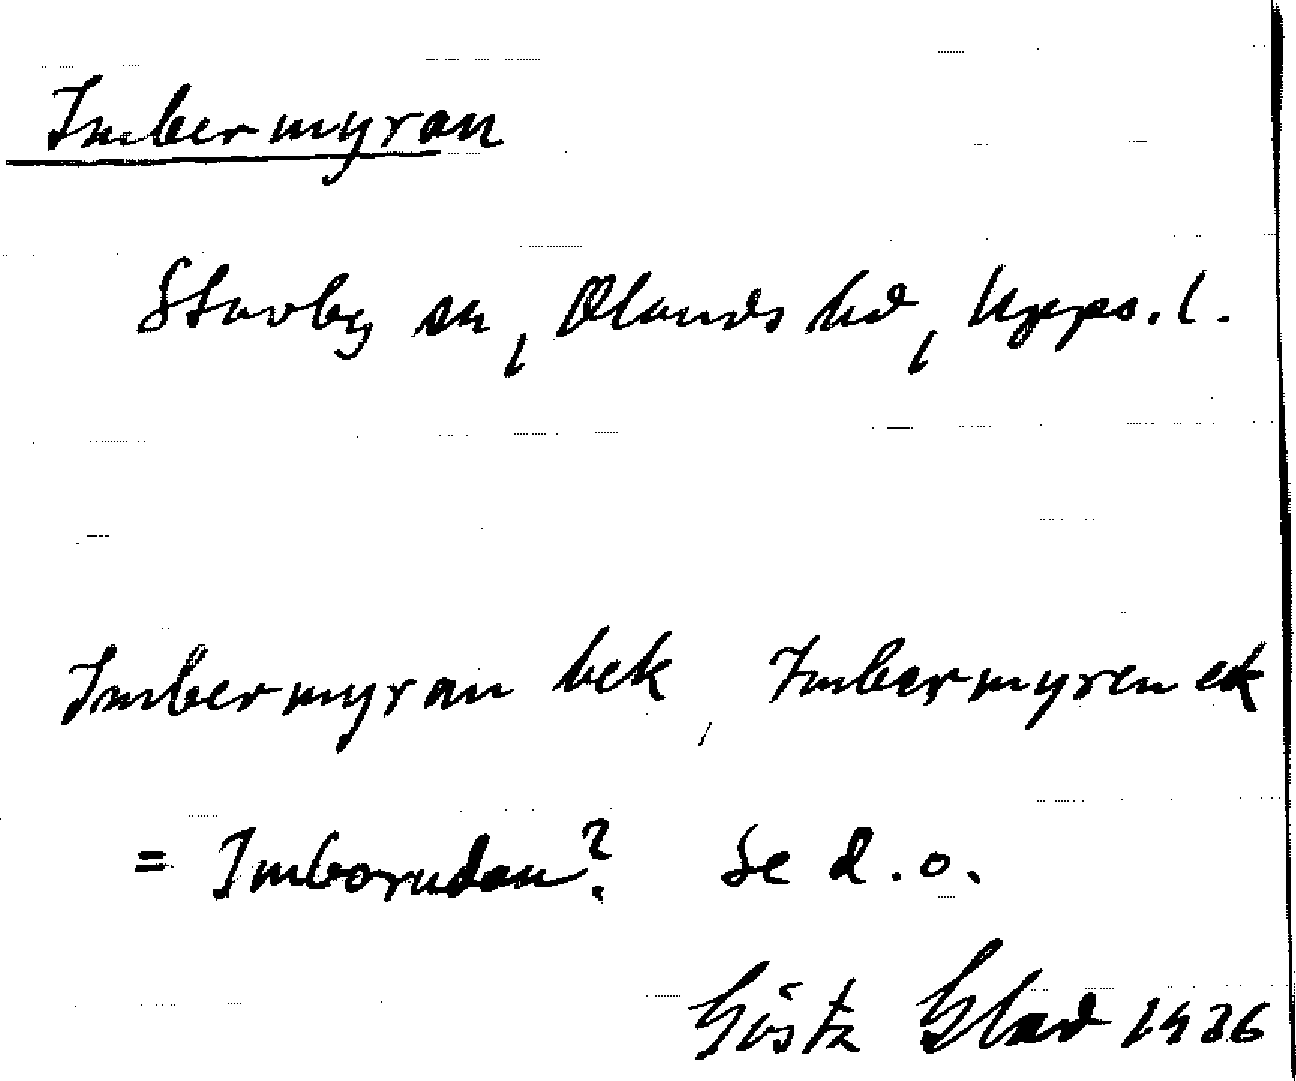 Imbermyran
Stavby sn, Olands hd, Upps. l.
Imbermyran bek, Imbermyren ek
= Imborudan? Se d.o.
Gösta Blad 1936